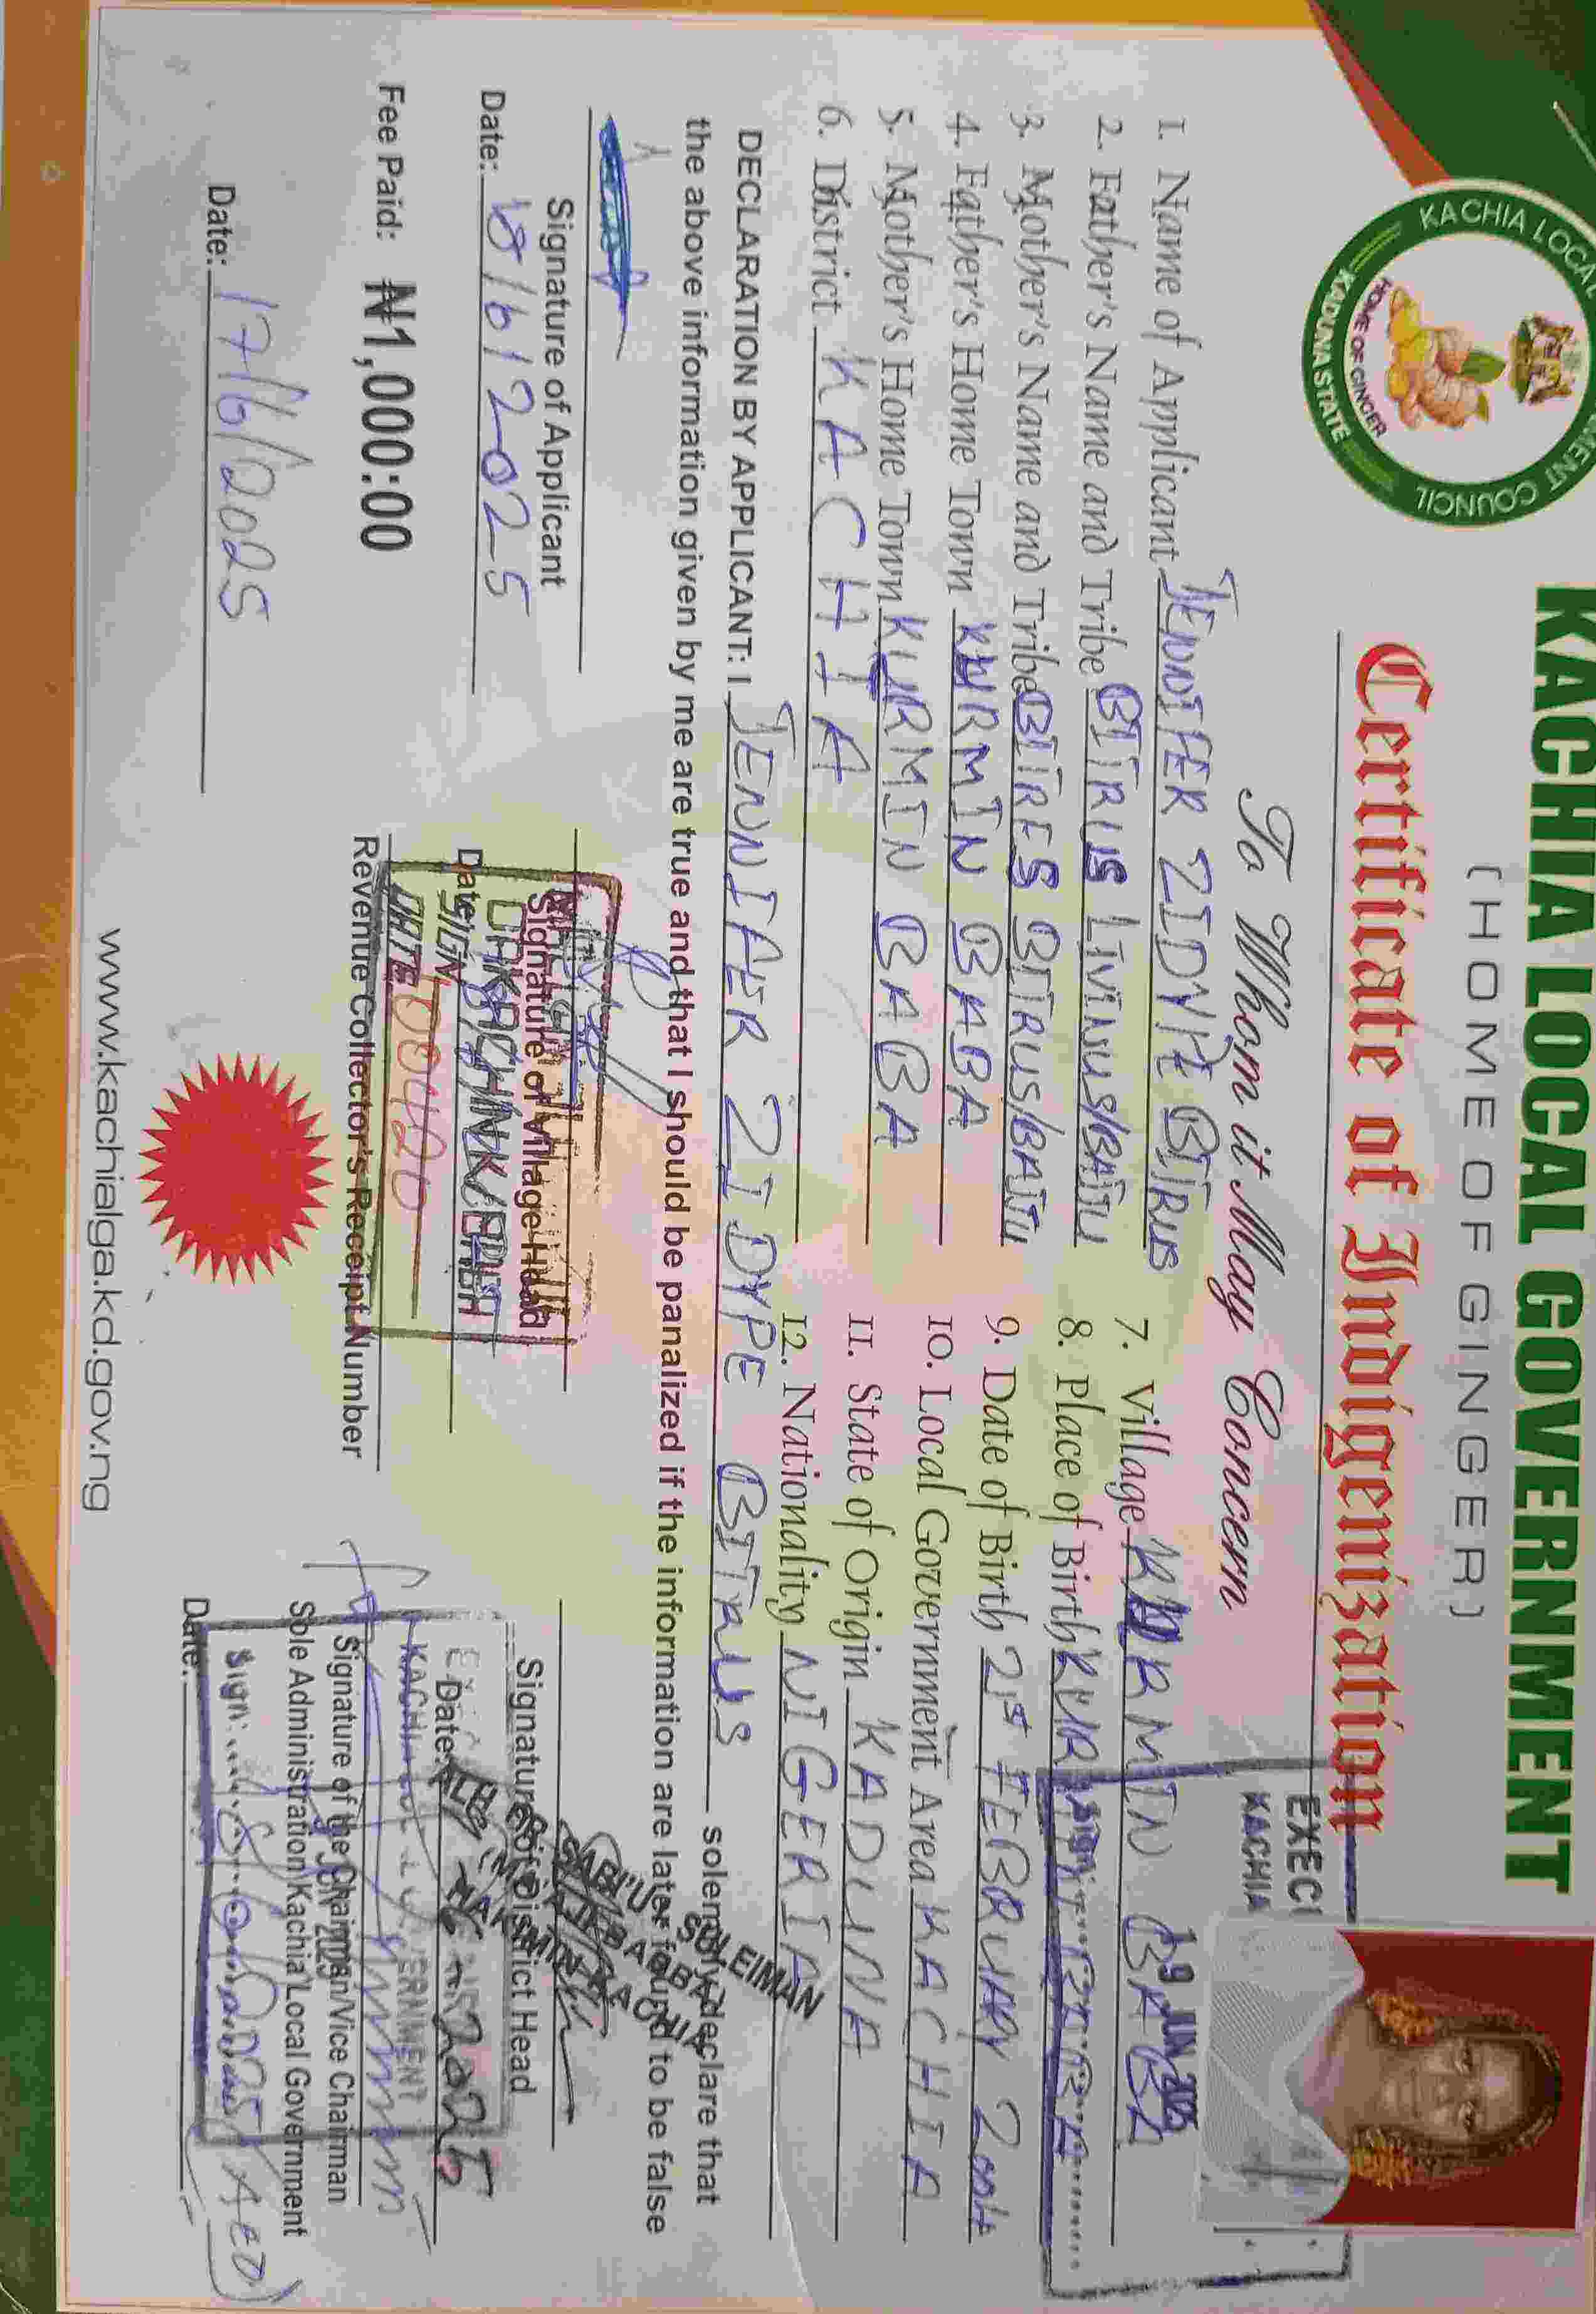 KACHIA LOCAL GOVERNMENT
(HOME OF GINGER)
Certificate of Indigenization
To Whom it May Concern
KACHIA LOCAL COUNCIL
HOME OF GINGER
KADUNA STATE
EXECU
KACHIA
19 JUN 2025
1. Name of Applicant JENNIFER ZIDYPE BITRUS
2. Father's Name and Tribe BITRUS LIVINUS/BAJJU
3. Mother's Name and Tribe BITRUS/BAJJU
4. Father's Home Town KURMIN BABA
5. Mother's Home Town KURMIN BABA
6. District KACHIA
7. Village KURMIN BABA
8. Place of Birth
9. Date of Birth 21st FEBRUARY
10. Local Government Area KACHIA
11. State of Origin KADUNA
12. Nationality NIGERIA
DECLARATION BY APPLICANT: I JENNIFER ZIDYPE BITRUS solemnly declare that
the above information given by me are true and that I should be panalized if the information are later found to be false
Signature of Applicant
Date: 18/6/2025
Signature of Village Head
Date:
SIGN
DATE
Signature of District Head
Date:
SULEIMAN
Fee Paid: ₦1,000:00
Revenue Collector's Receipt Number
Signature of the Chairman/Vice Chairman
Sole Administration Kachia Local Government
Date: 17/6/2025
Date:
Sign:
www.kachialga.kd.gov.ng